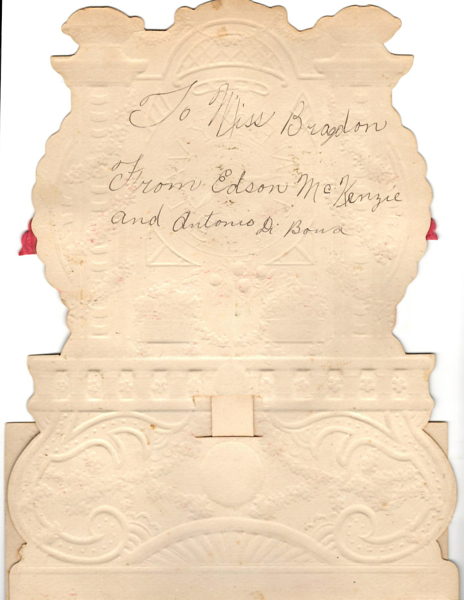 To Miss Bragdon
From Edson McKenzie
and Antonio Di Bona